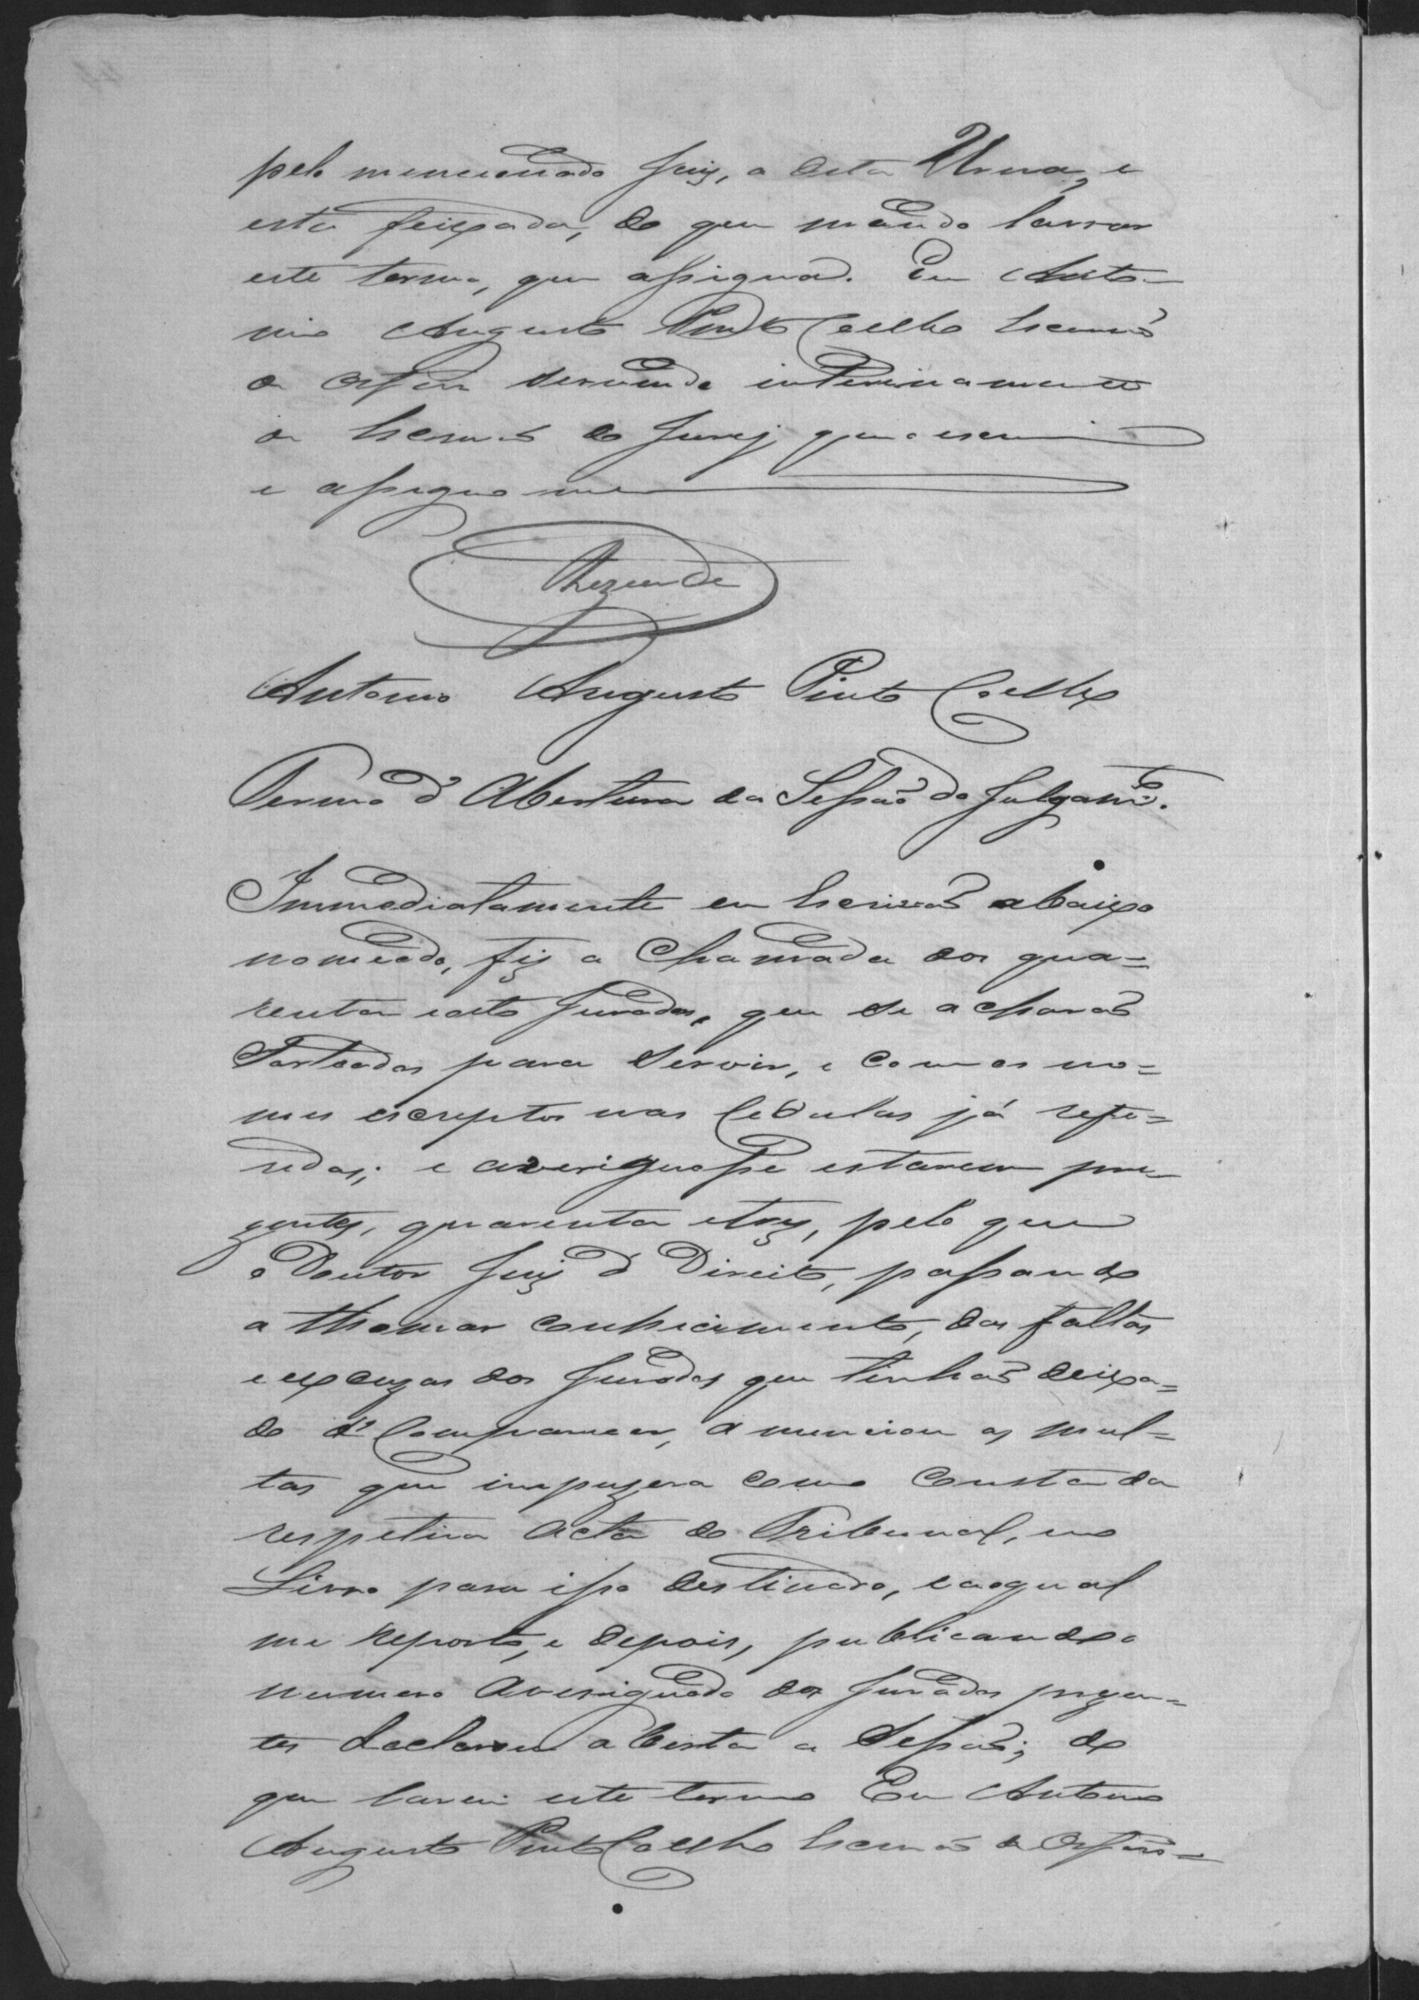 pelo mencionado Juiz, a dita Urna, e
esta feixada, do que mandou lavrar
este termo, que assigna. Eu Anto-
nio Augusto Pinto Coelho Escrivão
de Orfãos servindo interinamente
de Escrivão do Jury, que o escrevi
e assigno me
Rezende
Antonio Augusto Pinto Coelho
Termo d'Abertura da Sessão do Julgamto.
Immediatamente eu Escrivão abaixo
nomeado, fiz a Chamada dos qua=
renta e oito Jurados, que se achavão
Sorteados para servir, e com os no=
mes escriptos nas Cedulas já refe=
ridas; e averiguosse estarem pre
zentes, quarenta e trez, pelo que
o Doutor Juiz d Direito, passando
a thomar conhecimento, das faltas
e excuzas dos Jurados que tinhão deixa=
do d' Comparecer, anunciou as mul=
tas que impuzera como consta da
respetiva Acta do Tribunal, no
Livro para isso destinado, e aoqual
me reporto, e depois, publicando o
numero averiguado dos Jurados prezen=
tes declarou aberta a Sessão; do
que lavrei este termo Eu Antonio
Augusto Pinto Coelho Escrivão de Orfãos=